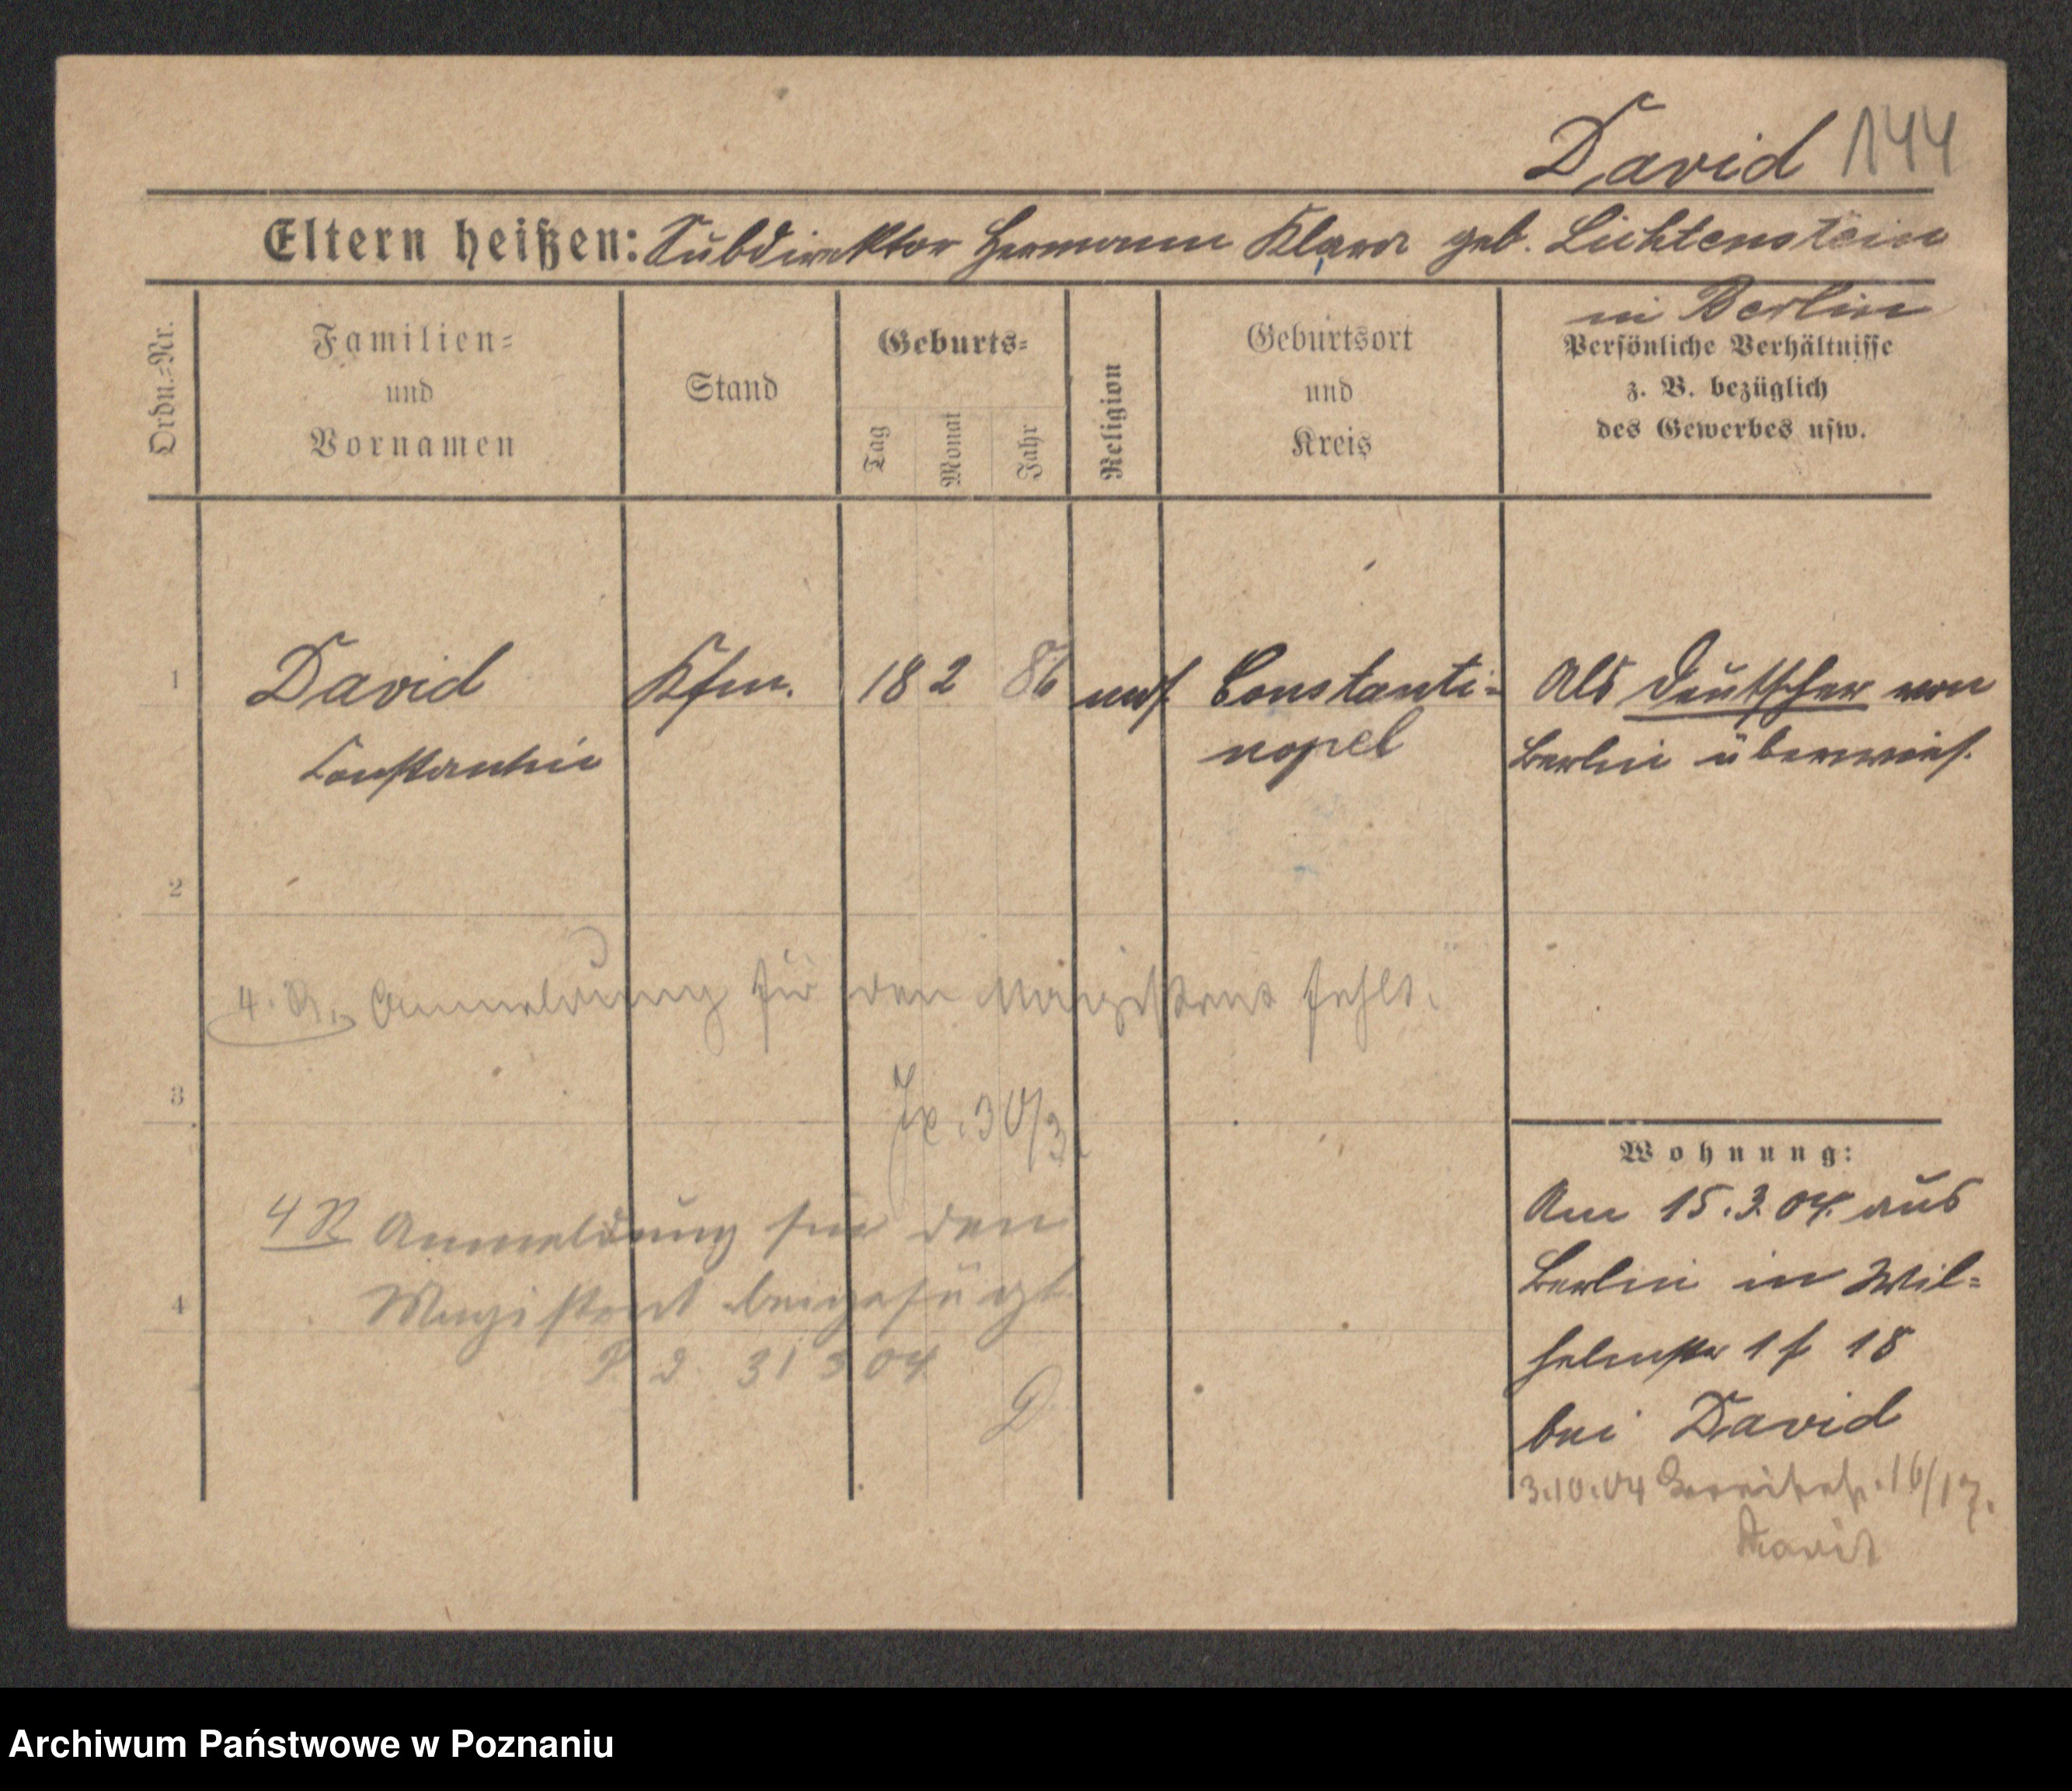 David 144
Eltern heißen: Subdirektor Hermann Klara geb. Lichtenstein
in Berlin
Ordn.-Nr.
Familien-
und
Vornamen
Stand
Geburts-
Tag
Monat
Jahr
Religion
Geburtsort
und
Kreis
Persönliche Verhältnisse
z. B. bezüglich
des Gewerbes usw.
1 David Kfm. 18 2 86 mos. Constanti-
nopel
Constantin
Als Deutscher von
Berlin überwies.
2
4. R. Anmeldung für den Magistrat fehlt.
30/3.
3
4 R Anmeldung für den
Magistrat beigefügt
4
P 2. 31 3 04
Wohnung:
Am 15.3.04. aus
Berlin in Wil-
helmstr 18
bei David
3.10.04 16/17.
David
Archiwum Państwowe w Poznaniu